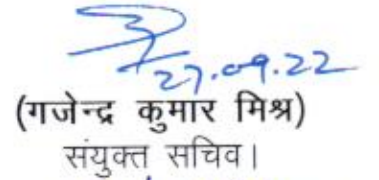 27.09.22
(गजेन्द्र कुमार मिश्र)
संयुक्त सचिव।